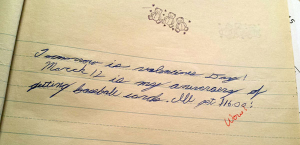 Tomorrow is valentines day!
March 12 is my aniversery of
geting baseball cards. Ill
Wow!